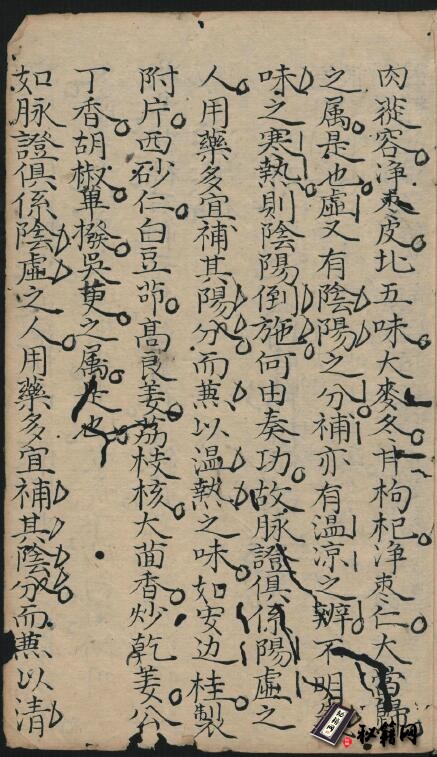 肉蓯容淨棗皮北五味大麥冬甘枸杞淨棗仁大當歸
之属是也虛又有陰陽之分補亦有温凉之辨不明
味之寒熱則陰陽倒施何由奏功故脉證俱係陽虛之
人用藥多宜補其陽分而蒸以温熱之味如安边桂製
附片西砂仁白豆卯髙良姜荔枝核大茴香炒乾姜公
丁香胡椒蓽撥吳萸之属是也
如脉證俱係陰虛之人用藥多宜補其陰分而蒸以清
秘籍网